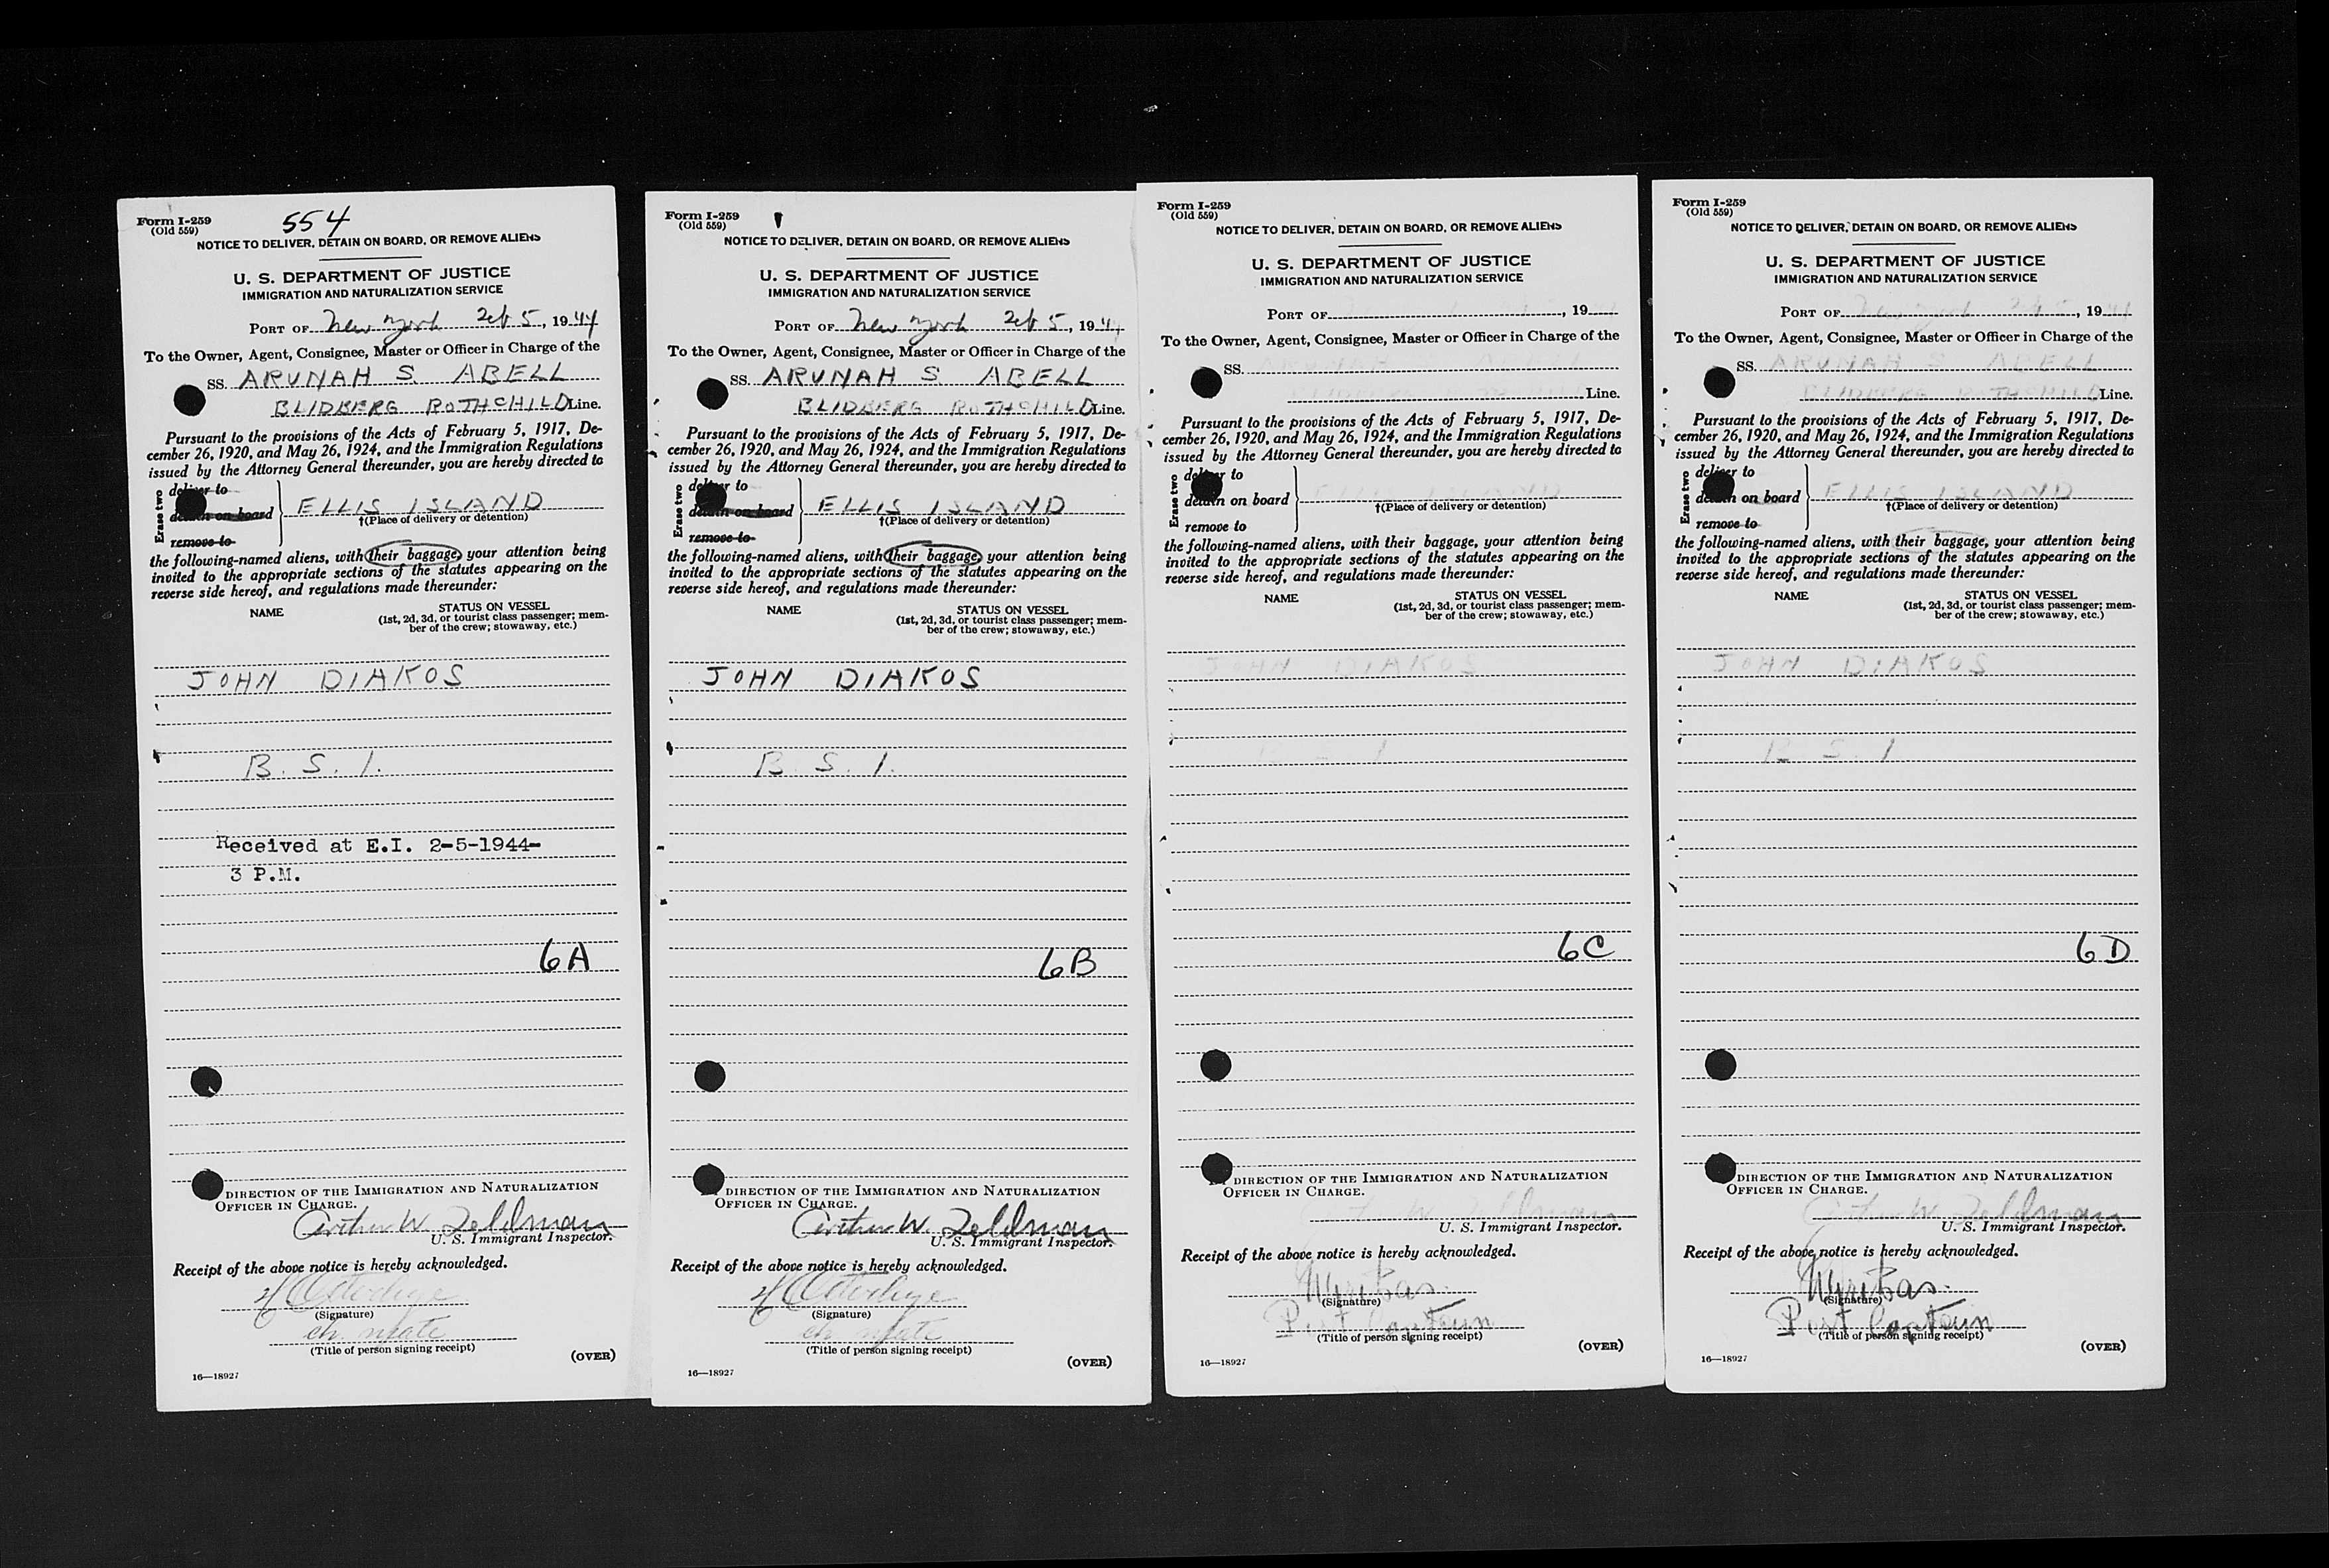 Form I-259
(Old 559)
554
NOTICE TO DELIVER, DETAIN ON BOARD, OR REMOVE ALIENS
U. S. DEPARTMENT OF JUSTICE
IMMIGRATION AND NATURALIZATION SERVICE
PORT OF New York Feb 5, 1944
To the Owner, Agent, Consignee, Master or Officer in Charge of the
SS. ARUNAH S. ABELL
BLIDBERG ROTHCHILD Line.
Pursuant to the provisions of the Acts of February 5, 1917, De-
cember 26, 1920, and May 26, 1924, and the Immigration Regulations
issued by the Attorney General thereunder, you are hereby directed to
Erase two
deliver to
detain on board
remove to
ELLIS ISLAND
†(Place of delivery or detention)
the following-named aliens, with their baggage, your attention being
invited to the appropriate sections of the statutes appearing on the
reverse side hereof, and regulations made thereunder:
NAME STATUS ON VESSEL
(1st, 2d, 3d, or tourist class passenger; mem-
ber of the crew; stowaway, etc.)
JOHN DIAKOS
B. S. I.
Received at E.I. 2-5-1944-
3 P.M.
6A
DIRECTION OF THE IMMIGRATION AND NATURALIZATION
OFFICER IN CHARGE.
Arthur W. Feldman
U. S. Immigrant Inspector.
Receipt of the above notice is hereby acknowledged.
(Signature)
ch. mate
(Title of person signing receipt)
(OVER)
16—18927
Form I-259
(Old 559)
NOTICE TO DELIVER, DETAIN ON BOARD, OR REMOVE ALIENS
U. S. DEPARTMENT OF JUSTICE
IMMIGRATION AND NATURALIZATION SERVICE
PORT OF New York Feb 5, 194
To the Owner, Agent, Consignee, Master or Officer in Charge of the
SS. ARUNAH S ABELL
BLIDBERG ROTHCHILD Line.
Pursuant to the provisions of the Acts of February 5, 1917, De-
cember 26, 1920, and May 26, 1924, and the Immigration Regulations
issued by the Attorney General thereunder, you are hereby directed to
Erase two
deliver to
detain on board
remove to
ELLIS ISLAND
†(Place of delivery or detention)
the following-named aliens, with their baggage, your attention being
invited to the appropriate sections of the statutes appearing on the
reverse side hereof, and regulations made thereunder:
NAME STATUS ON VESSEL
(1st, 2d, 3d, or tourist class passenger; mem-
ber of the crew; stowaway, etc.)
JOHN DIAKOS
B. S. I.
6B
DIRECTION OF THE IMMIGRATION AND NATURALIZATION
OFFICER IN CHARGE.
Arthur W. Feldman
U. S. Immigrant Inspector.
Receipt of the above notice is hereby acknowledged.
(Signature)
ch. mate
(Title of person signing receipt)
(OVER)
16—18927
Form I-259
(Old 559)
NOTICE TO DELIVER, DETAIN ON BOARD, OR REMOVE ALIENS
U. S. DEPARTMENT OF JUSTICE
IMMIGRATION AND NATURALIZATION SERVICE
PORT OF , 19
To the Owner, Agent, Consignee, Master or Officer in Charge of the
SS.
Line.
Pursuant to the provisions of the Acts of February 5, 1917, De-
cember 26, 1920, and May 26, 1924, and the Immigration Regulations
issued by the Attorney General thereunder, you are hereby directed to
Erase two
deliver to
detain on board
remove to
†(Place of delivery or detention)
the following-named aliens, with their baggage, your attention being
invited to the appropriate sections of the statutes appearing on the
reverse side hereof, and regulations made thereunder:
NAME STATUS ON VESSEL
(1st, 2d, 3d, or tourist class passenger; mem-
ber of the crew; stowaway, etc.)
JOHN DIAKOS
6C
DIRECTION OF THE IMMIGRATION AND NATURALIZATION
OFFICER IN CHARGE.
U. S. Immigrant Inspector.
Receipt of the above notice is hereby acknowledged.
(Signature)
(Title of person signing receipt)
(OVER)
16—18927
Form I-259
(Old 559)
NOTICE TO DELIVER, DETAIN ON BOARD, OR REMOVE ALIENS
U. S. DEPARTMENT OF JUSTICE
IMMIGRATION AND NATURALIZATION SERVICE
PORT OF New York Feb 5, 1944
To the Owner, Agent, Consignee, Master or Officer in Charge of the
SS. ARUNAH S ABELL
BLIDBERG ROTHCHILD Line.
Pursuant to the provisions of the Acts of February 5, 1917, De-
cember 26, 1920, and May 26, 1924, and the Immigration Regulations
issued by the Attorney General thereunder, you are hereby directed to
Erase two
deliver to
detain on board
remove to
ELLIS ISLAND
†(Place of delivery or detention)
the following-named aliens, with their baggage, your attention being
invited to the appropriate sections of the statutes appearing on the
reverse side hereof, and regulations made thereunder:
NAME STATUS ON VESSEL
(1st, 2d, 3d, or tourist class passenger; mem-
ber of the crew; stowaway, etc.)
JOHN DIAKOS
B S I
6D
DIRECTION OF THE IMMIGRATION AND NATURALIZATION
OFFICER IN CHARGE.
Arthur W. Feldman
U. S. Immigrant Inspector.
Receipt of the above notice is hereby acknowledged.
(Signature)
Port Captain
(Title of person signing receipt)
(OVER)
16—18927